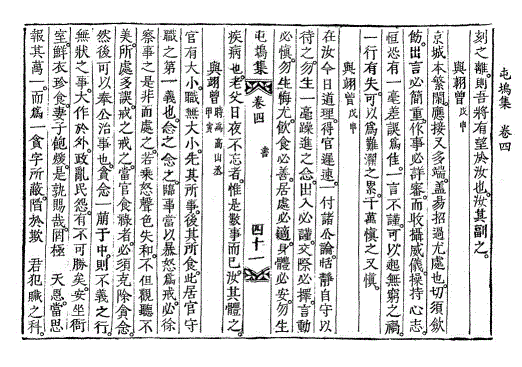 屯塢集　卷四
刻之離則吾將有望於汝也汝其副之
與翊曾 戊申
京城本繁鬧應接又多端蓋易招過尤處也切須飮
飭出言必簡重作事必詳審而收攝威儀操持心志
恒恐有一毫差誤爲佳一言不謹可以起無窮之禍
一行有失可以爲難灑之累千萬愼之又愼
與翊曾 戊申
在汝今日道理得官遲速一付諸公論恬靜自守以
待之勿生一毫躁進之念出入必謹交際必擇言動
必愼勿生悔尤飮食必善居處必適身體必安勿生
屯塢集　卷四　書　四十一
疾病也老父日夜不忘者惟是數事而已汝其體之
與翊曾 時爲高山丞 甲寅
官有大小職無大小先其所事後其所食此居官守
職之第一義也念之念之臨事當以暴怒爲戒必徐
察事之是非而處之若乘怒聲色失和不但觀聽不
美所處多誤戒之戒之當官食祿者必須克除貪念
然後可以奉公治事也貪念一萌于中則不義之行
無狀之事大作於外政亂民怨有不可勝矣安坐衙
室鮮衣珍食妻子飽煖是孰賜哉罔極　天恩當思
報其萬一而爲一貪字所蔽陷於欺　君犯贓之科